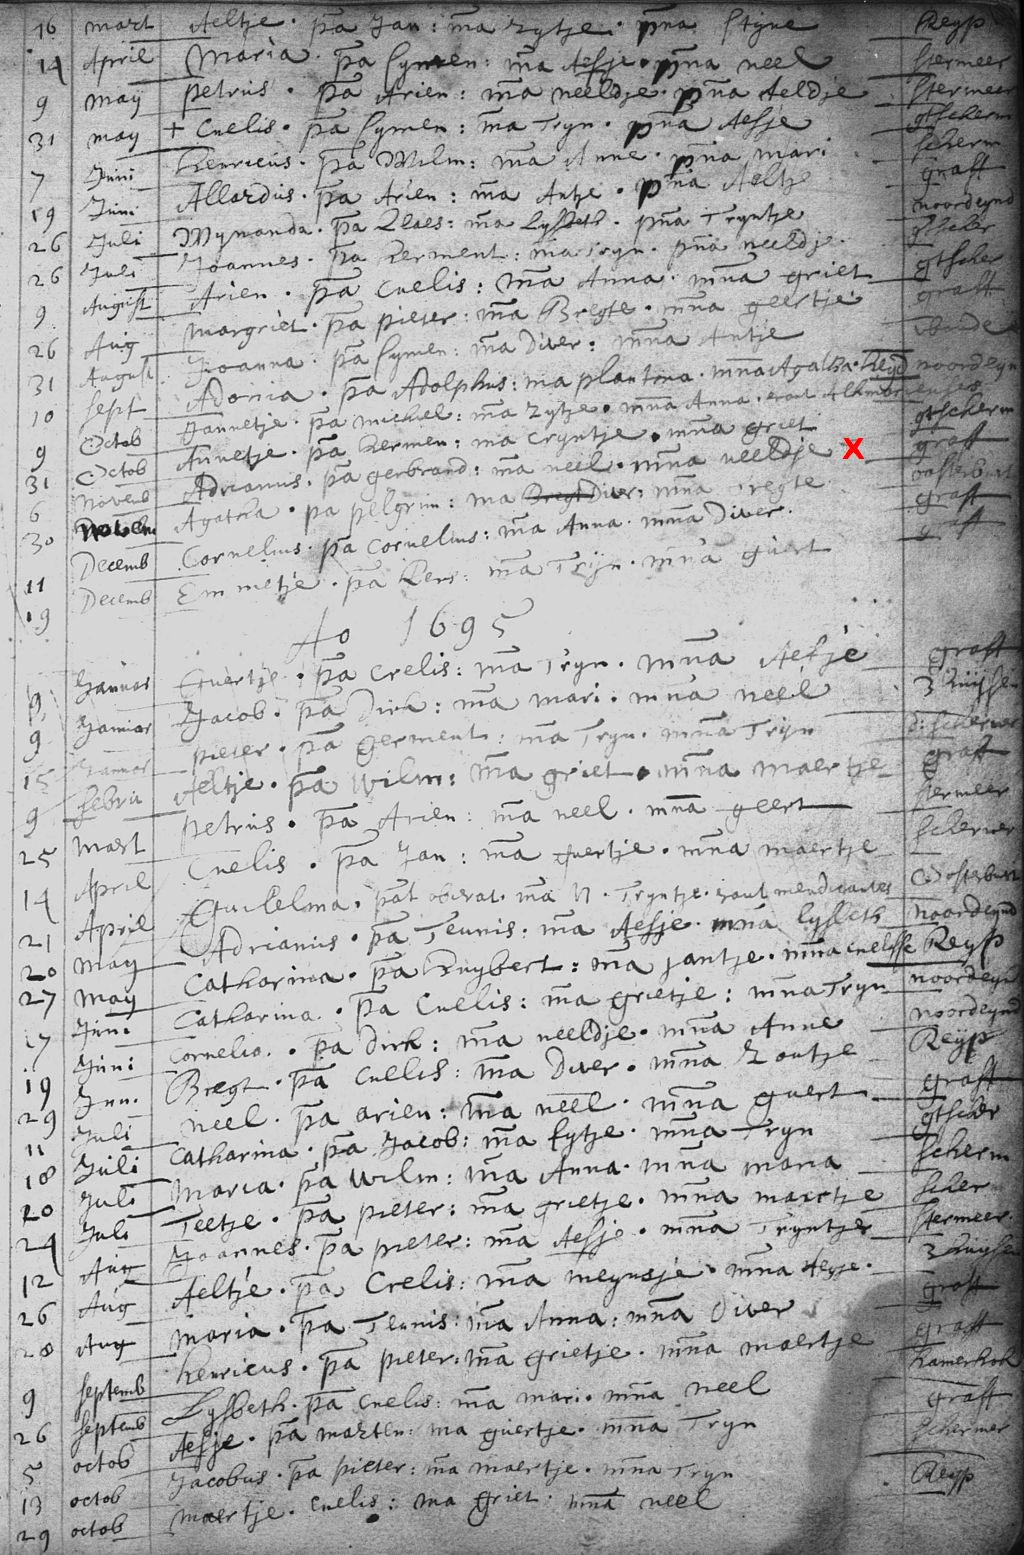 16 mart Aeltje · pa Jan : ma Zytje · mna Stijne Reyp
14 April Maria · pa Symen : ma Aefje · mna neel stermeer
9 may petrus · pa Arien : ma neeldje · mna Aeldje stermeer
31 may + Cnelis · pa Symen : ma Tryn · mna Aefje gtscherm
7 Juni henricus · pa Wilm : ma Anne · mna mari scherm
19 Juni Allardus · pa Arien : ma Antje · mna Aeltje graft
26 Juli Wymanda · pa Claes : ma Lysbeth · mna Tryntje noordeynd
26 Juli Joannes · pa herment : ma Tryn · mna neeldj
9 August Arien · pa Cnelis : ma Anna · mna griet gtscher
26 Aug margriet · pa pieter : ma Bregte · mna geertje graft
31 August Joanna · pa Symen : ma Diver : mna Antje
10 sept Adonia · pa Adolphus : ma plantina · mna Agatha · noordeyn
9 Octob Jannetje · pa michiel : ma Zytje · mna Anna · erant Alkmarienses
31 Octob Annetje · pa hermen : ma Cryntje · mna griet gtscherm
6 Novemb Adrianus · pa gerbrand : ma neel · mna neeldje X graft
30 Agatha · pa pelgrim : ma Bregt Diver : mna Tregte oosterburt
11 Decemb Cornelius · pa Cornelius : ma Anna · mna Diver · graft
19 Decemb Emmetje · pa : ma Trijn · mna guert graft
Ao 1695
9 Januar Guertje · pa Crelis : ma Tryn · mna Aefje graft
9 Januar Jacob · pa Dirk : ma mari · mna neel
15 Januar pieter · pa germent : ma Tryn · mna Trijn
9 febru Aeltje · pa Wilm : ma griet · mna maertje graft
25 mart petrus · pa Arien : ma neel · mna geert stermeer
14 April Cnelis · pa Jan : ma guertje · mna maertje schermer
21 April Guilelma · pat oberat · ma N · Tryntje · erant mendicantes Oosterburt
20 may Adrianus · pa Teunis : ma Aefje · mna Lysbeth noordeynd
27 may Catharina · pa Huybert : ma jantje · mna cnelisse Reyp
17 Juni Catharina · pa Cnelis : ma grietje : mna Tryn noordeyn
19 Juni Cornelia · pa Dirk : ma neeldje · mna Anne noordeynd
29 Juni Bregt · pa Cnelis : ma Diver · mna Zoutje Reyp
11 Juli neel · pa arien : ma neel · mna guert graft
18 Juli Catharina · pa Jacob : ma fytje · mna Tryn gtscher
20 Juli Maria · pa Wilm : ma Anna · mna maria scherm
24 Juli Teetje · pa pieter : ma grietje · mna maertje scher
12 Aug Joannes · pa pieter : ma Aefje · mna Tryntjer stermeer
26 Aug Aeltje · pa Crelis : ma meynsje · mna Aegje ·
28 Aug maria · pa Teunis : ma Anna : mna Diver graft
9 septemb henricus · pa pieter : ma grietje · mna maertje graft
26 septemb Lysbeth · pa Cnelis : ma mari · mna neel kamerhok
5 octob Aefje · pa marten : ma guertje · mna Tryn graft
13 octob Jacobus · pa pieter : ma maertje · mna Tryn schermer
29 octob maertje · Cnelis : ma griet : mna neel Reyp